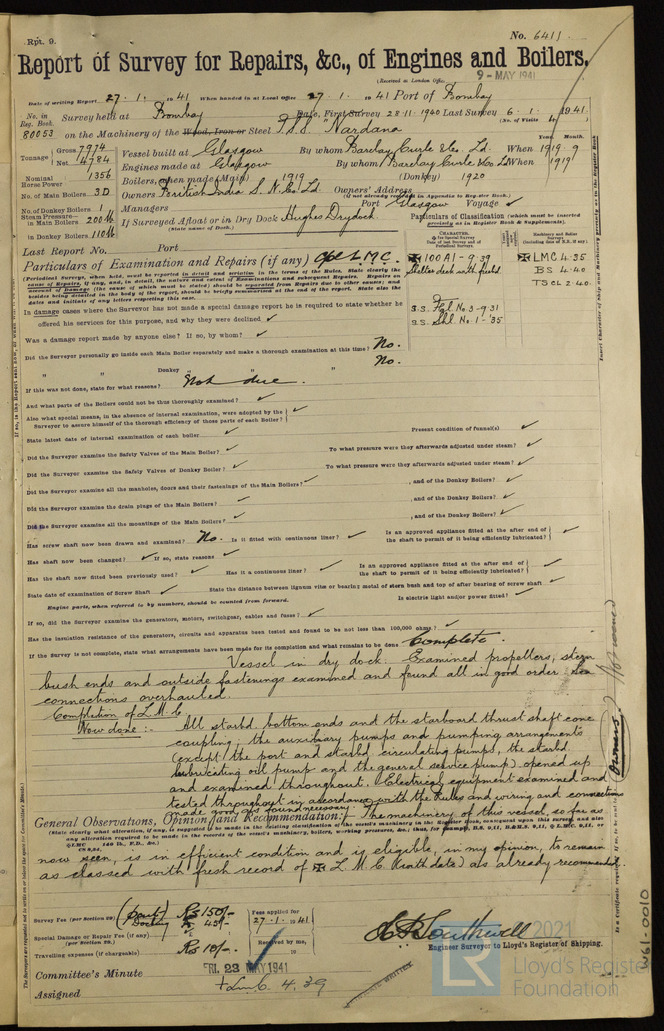 Rpt. 9.
No. 6411
Report of Survey for Repairs, &c., of Engines and Boilers.
(Received at London Office 9 - MAY 1941
Date of writing Report 27.1. 1941 When handed in at Local Office 27.1. 1941 Port of Bombay
No. in Reg. Book. Survey held at Bombay Date, First Survey 28.11.1940 Last Survey 6.1.1941.
(No. of Visits 4)
80053 on the Machinery of the Wood, Iron or Steel T.S.S. Nardana
Tonnage Gross 7974 Net 4784
Vessel built at Glasgow By whom Barclay Curle & Co. Ld. When 1919. 9
Year. Month.
Engines made at Glasgow By whom Barclay Curle & Co Ld When 1919
Nominal Horse Power 1356
Boilers, when made (Main) 1919 (Donkey) 1920
No. of Main Boilers 3D
Owners British India S. N. Co. Ld Owners' Address
(if not already recorded in Appendix to Register Book.)
No. of Donkey Boilers 1
Managers Port Glasgow Voyage ✓
Steam Pressure in Main Boilers 200 lb
in Donkey Boilers 110 lb
If Surveyed Afloat or in Dry Dock Hughes Drydock.
(State name of Dock.)
Particulars of Classification (which must be inserted precisely as in Register Book & Supplements).
Last Report No. Port
Particulars of Examination and Repairs (if any)
✠100A1 - 9.39
Shelter deck with f'bd.
✠ LMC 4.35
BS 4.40
TS CL 2.40.
S.S. Sgl. No. 3 - 9.31
S.S. Shl. No. 1 - '35
In damage cases where the Surveyor has not made a special damage report he is required to state whether he
offered his services for this purpose, and why they were declined ✓
Was a damage report made by anyone else? If so, by whom? ✓
Did the Surveyor personally go inside each Main Boiler separately and make a thorough examination at this time? No.
" " Donkey " " " No.
If this was not done, state for what reasons? Not due.
And what parts of the Boilers could not be thoroughly examined? ✓
Also what special means, in the absence of internal examination, were adopted by the
Surveyor to assure himself of the thorough efficiency of those parts of each Boiler? ✓
State latest date of internal examination of each boiler ✓ Present condition of funnel(s) ✓
Did the Surveyor examine the Safety Valves of the Main Boiler? ✓ To what pressure were they afterwards adjusted under steam? ✓
Did the Surveyor examine the Safety Valves of Donkey Boiler? ✓ To what pressure were they afterwards adjusted under steam? ✓
Did the Surveyor examine all the manholes, doors and their fastenings of the Main Boilers? ✓, and of the Donkey Boilers? ✓
Did the Surveyor examine the drain plugs of the Main Boilers? ✓, and of the Donkey Boilers? ✓
Did the Surveyor examine all the mountings of the Main Boilers? ✓, and of the Donkey Boilers? ✓
Has screw shaft now been drawn and examined? No. Is it fitted with continuous liner? ✓ Is an approved appliance fitted at the after end of the shaft to permit of it being efficiently lubricated? ✓
Has shaft now been changed? ✓ If so, state reasons ✓
Has the shaft now fitted been previously used? ✓ Has it a continuous liner? ✓ Is an approved appliance fitted at the after end of the shaft to permit of it being efficiently lubricated? ✓
State date of examination of Screw Shaft ✓ State the distance between lignum vitæ or bearing metal of stern bush and top of after bearing of screw shaft ✓
Engine parts, when referred to by numbers, should be counted from forward. Is electric light and/or power fitted? ✓
If so, did the Surveyor examine the generators, motors, switchgear, cables and fuses? ✓
Has the insulation resistance of the generators, circuits and apparatus been tested and found to be not less than 100,000 ohms? ✓
If the Survey is not complete, state what arrangements have been made for its completion and what remains to be done Complete.
Vessel in dry dock. Examined propellers, stern
bush ends and outside fastenings examined and found all in good order
connections overhauled.
Completion of L.M.C.
Now done:- All starbd. bottom ends and the starboard thrust shaft cone
coupling; the auxiliary pumps and pumping arrangements
(except the port and starbd. circulating pumps, the starbd.
lubricating oil pump and the general service pump) opened up
and examined throughout. Electrical equipment examined and
tested throughout in accordance with the Rules and wiring and connections
made good as found necessary.
General Observations, Opinion, and Recommendation:- The machinery of this vessel, so far as
(State clearly what alteration, if any, is suggested to be made in the existing classification of the vessel's machinery in the Register Book, consequent upon this survey, and also
now seen, is in efficient condition and is eligible, in my opinion, to remain
as classed with fresh record of ✠ L.M.C. (with date) as already recommended.
Survey Fee (per Section 29) (part) Rs 150/-
Docking Rs 45/-
Fees applied for 27.1.1941
Special Damage or Repair Fee (if any) (per Section 29)
Received by me,
Travelling expenses (if chargeable) Rs 10/-
Engineer Surveyor to Lloyd's Register of Shipping.
Committee's Minute FRI. 23 MAY 1941
Assigned + LMC 4.39
W61-0010
2021
LR
Lloyd's Register
Foundation